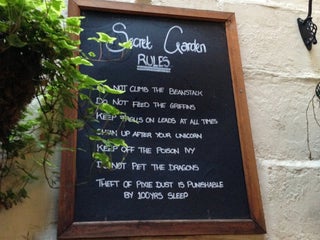 Secret Garden
RULES
NOT CLIMB THE BEANSTALK
DO NOT FEED THE GRIFFINS
KEEP ON LEADS AT ALL TIMES
UP AFTER YOUR UNICORN
KEEP OFF THE POISON IVY
NOT PET THE DRAGONS
THEFT OF PIXIE DUST IS PUNISHABLE
BY 100YRS SLEEP